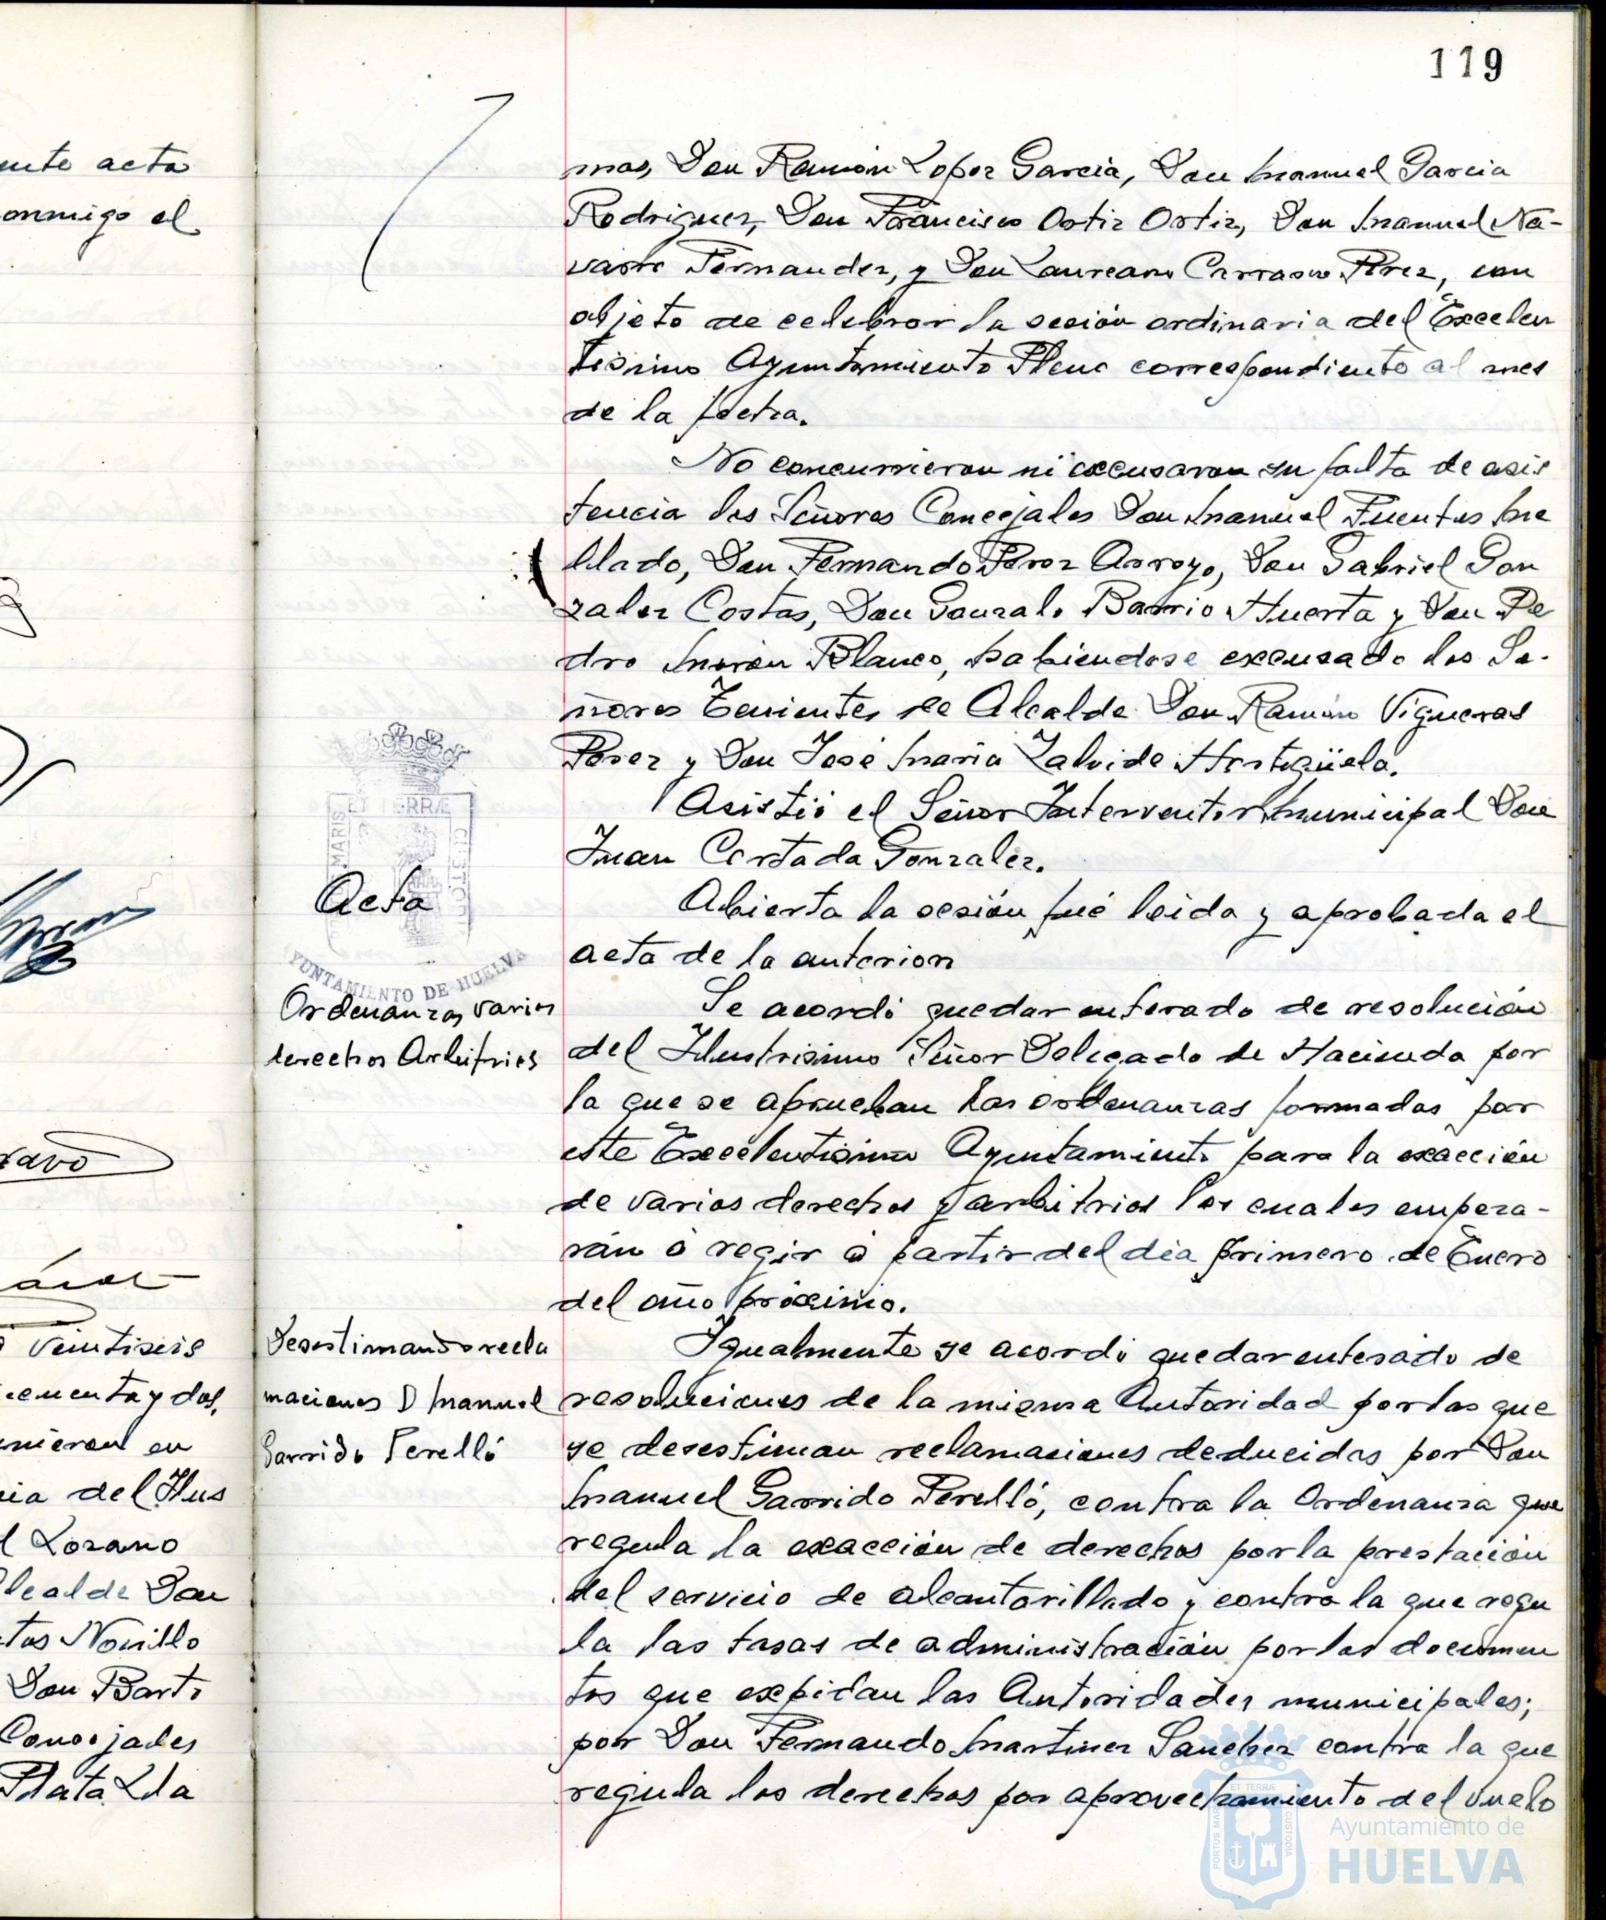 119
ente acta
onmigo el
avo
veintiseis
cuenta y dos,
nieron en
cia del Ilus
l Lozano
lcalde Don
tos Novillo
Don Barto
Concejales
Plata Lla
mas, Don Ramón Lopez Garcia, Don Manuel Garcia
Rodriguez, Don Francisco Ortiz Ortiz, Don Manuel Na-
varro Fernandez, y Don Laureano Carrasco Perez, con
objeto de celebrar la sesión ordinaria del Excelen
tisimo Ayuntamiento Pleno correspondiente al mes
de la fecha.
No concurrieron ni excusaron su falta de asis
tencia los Señores Concejales Don Manuel Fuentes Me
llado, Don Fernando Perez Arroyo, Don Gabriel Gon
zalez Costas, Don Gonzalo Barrio Huerta y Don Pe
dro Morón Blanco, habiendose excusado los Se-
ñores Tenientes de Alcalde Don Ramón Vigueras
Perez y Don José Maria Zalvide Hortigüela.
Asistió el Señor Interventor Municipal Don
Juan Cortada Gonzalez.
Acta
Abierta la sesión fué leida y aprobada el
acta de la anterior
PORTUS MARIS ET TERRÆ CUSTODIA
AYUNTAMIENTO DE HUELVA
Ordenanzas varios
derechos Arbitrios
Se acordó quedar enterado de resolución
del Ilustrisimo Señor Delegado de Hacienda por
la que se aprueban las ordenanzas formadas por
este Excelentisimo Ayuntamiento para la exacción
de varios derechos y arbitrios los cuales empeza-
rán á regir á partir del dia primero de Enero
del año próximo.
Desestimando recla
maciones D Manuel
Garrido Perelló
Igualmente se acordó quedar enterado de
resoluciones de la misma Autoridad por las que
se desestiman reclamaciones deducidas por Don
Manuel Garrido Perelló, contra la Ordenanza que
regula la exacción de derechos por la prestación
del servicio de alcantarillado y contra la que regu
la las tasas de administración por los documen
tos que expidan las Autoridades municipales;
por Don Fernando Martinez Sanchez contra la que
regula los derechos por aprovechamiento del vuelo
PORTUS MARIS ET TERRÆ CUSTODIA
Ayuntamiento de
HUELVA